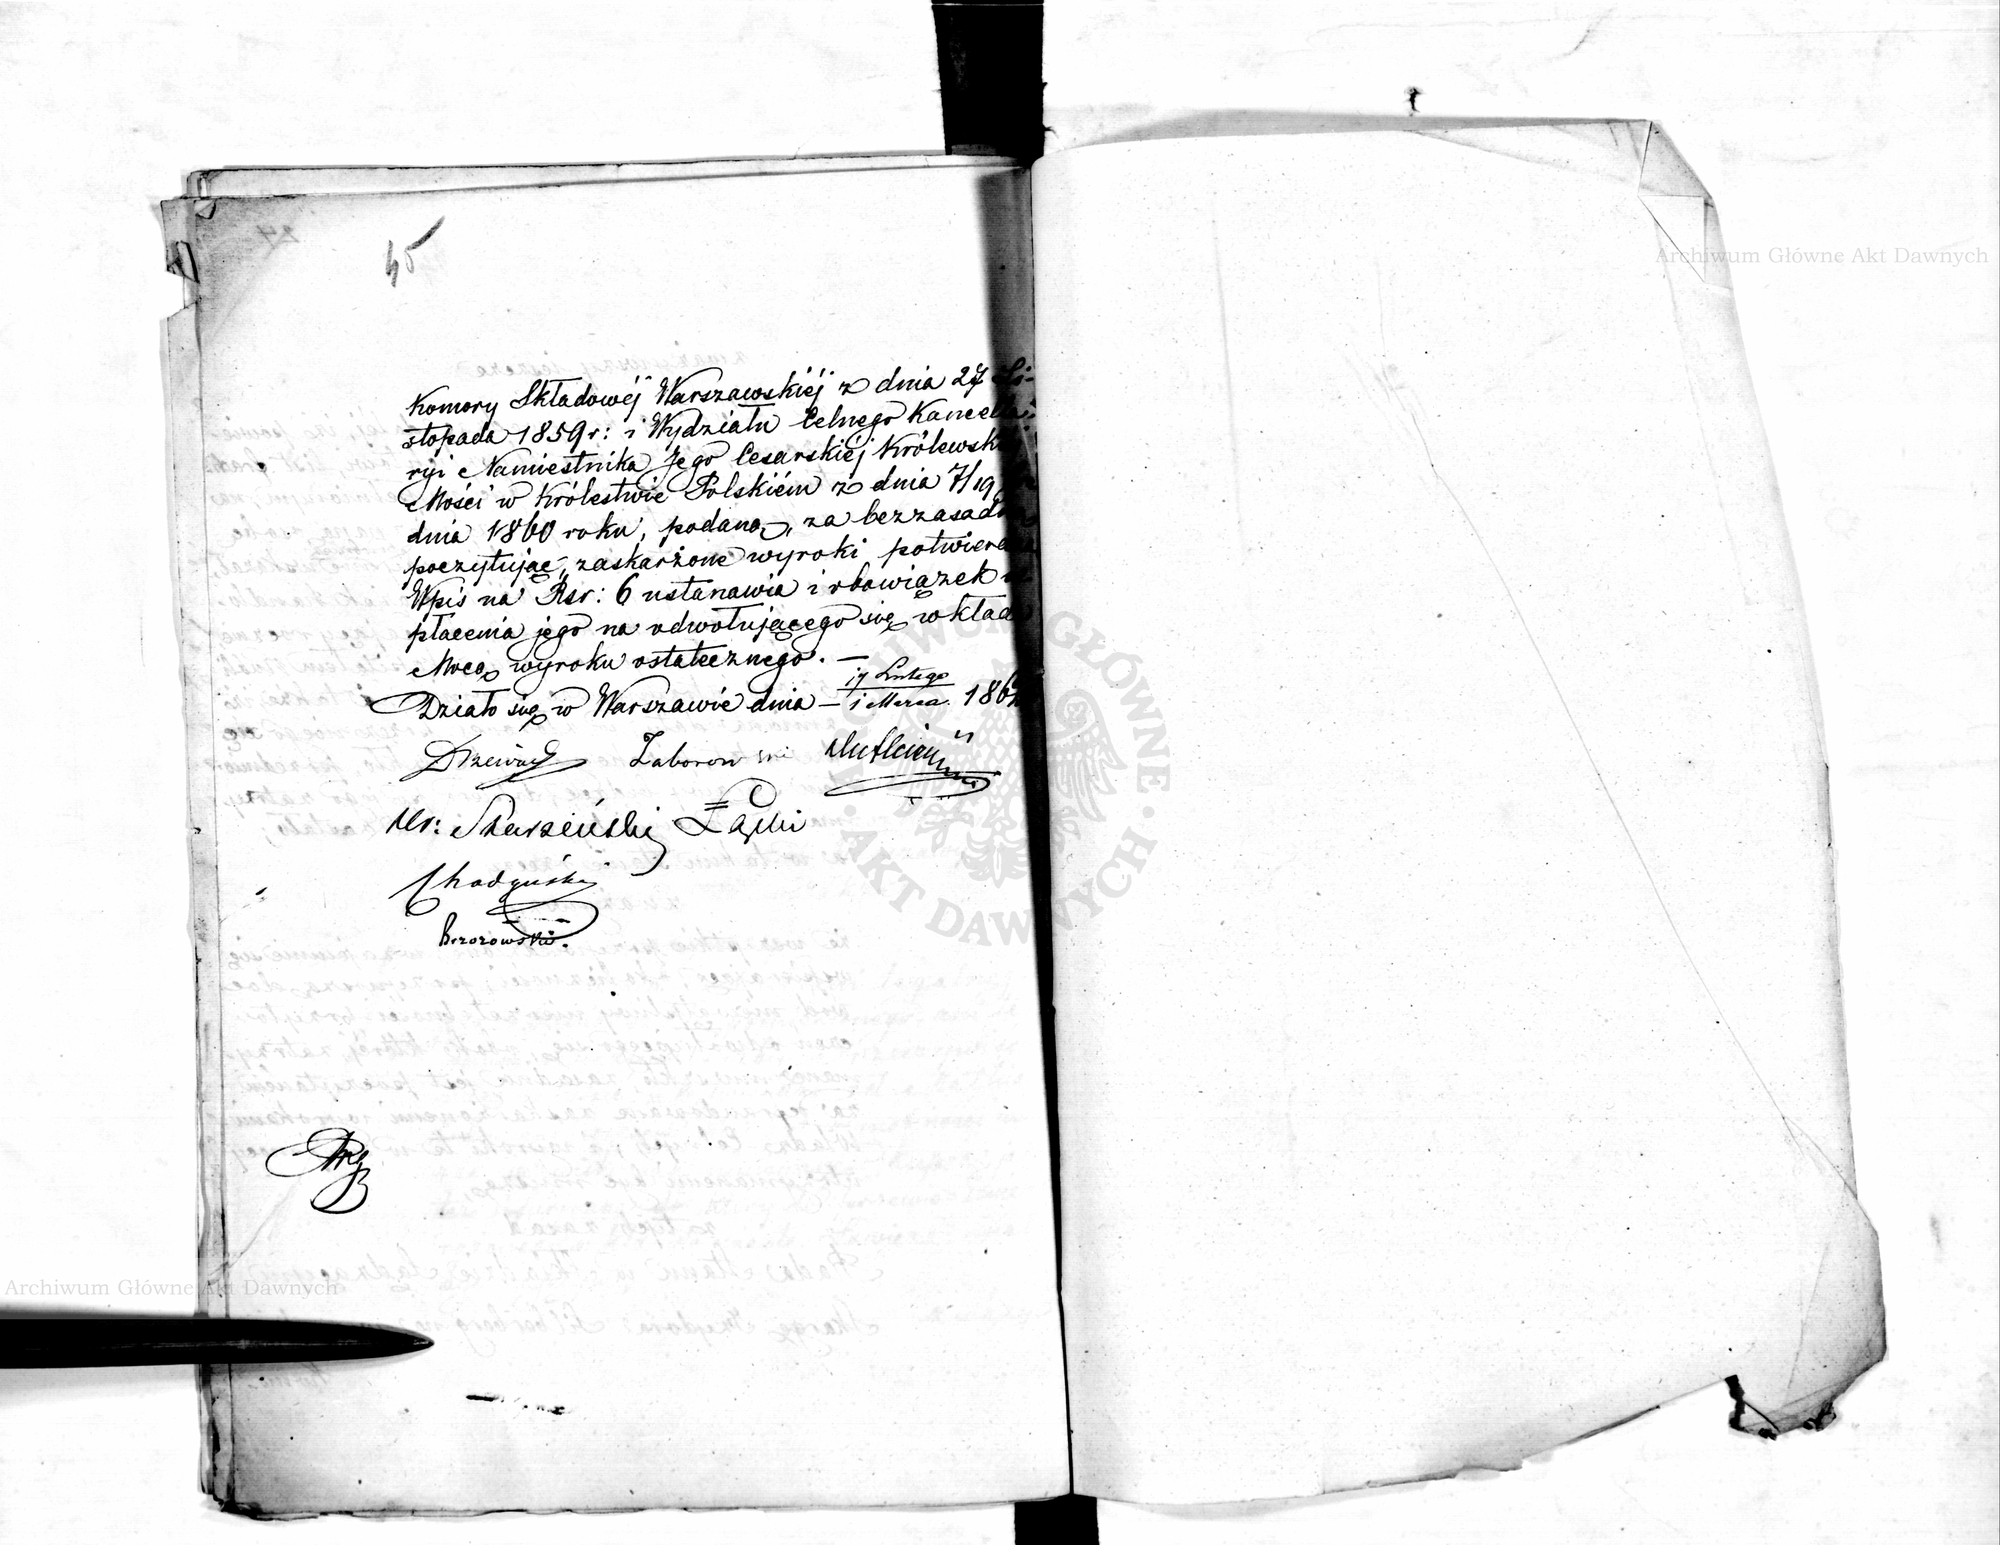 45
Komory Składowéj Warszawskiéj z dnia 27 Li-
stopada 1859 r: i Wydziału Celnego Kancella-
ryi Namiestnika Jego Cesarskiéj Królewskiéj
Mości w Królestwie Polskiém z dnia 7/19
dnia 1860 roku, podaną, za bezzasadną
poczytując, zaskarżone wyroki potwierdza
Wpis na Rsr: 6 ustanawia i obowiązek
płacenia jego na odwołującego się wkłada
Mocą wyroku ostatecznego. —
Działo się w Warszawie dnia — 17 Lutego / 1 Marca 186
Zaborowski
Skarzeński Łąski
Chodyński
Brzozowski.
Archiwum Główne Akt Dawnych
Archiwum Główne Akt Dawnych
ARCHIWUM GŁÓWNE
AKT DAWNYCH